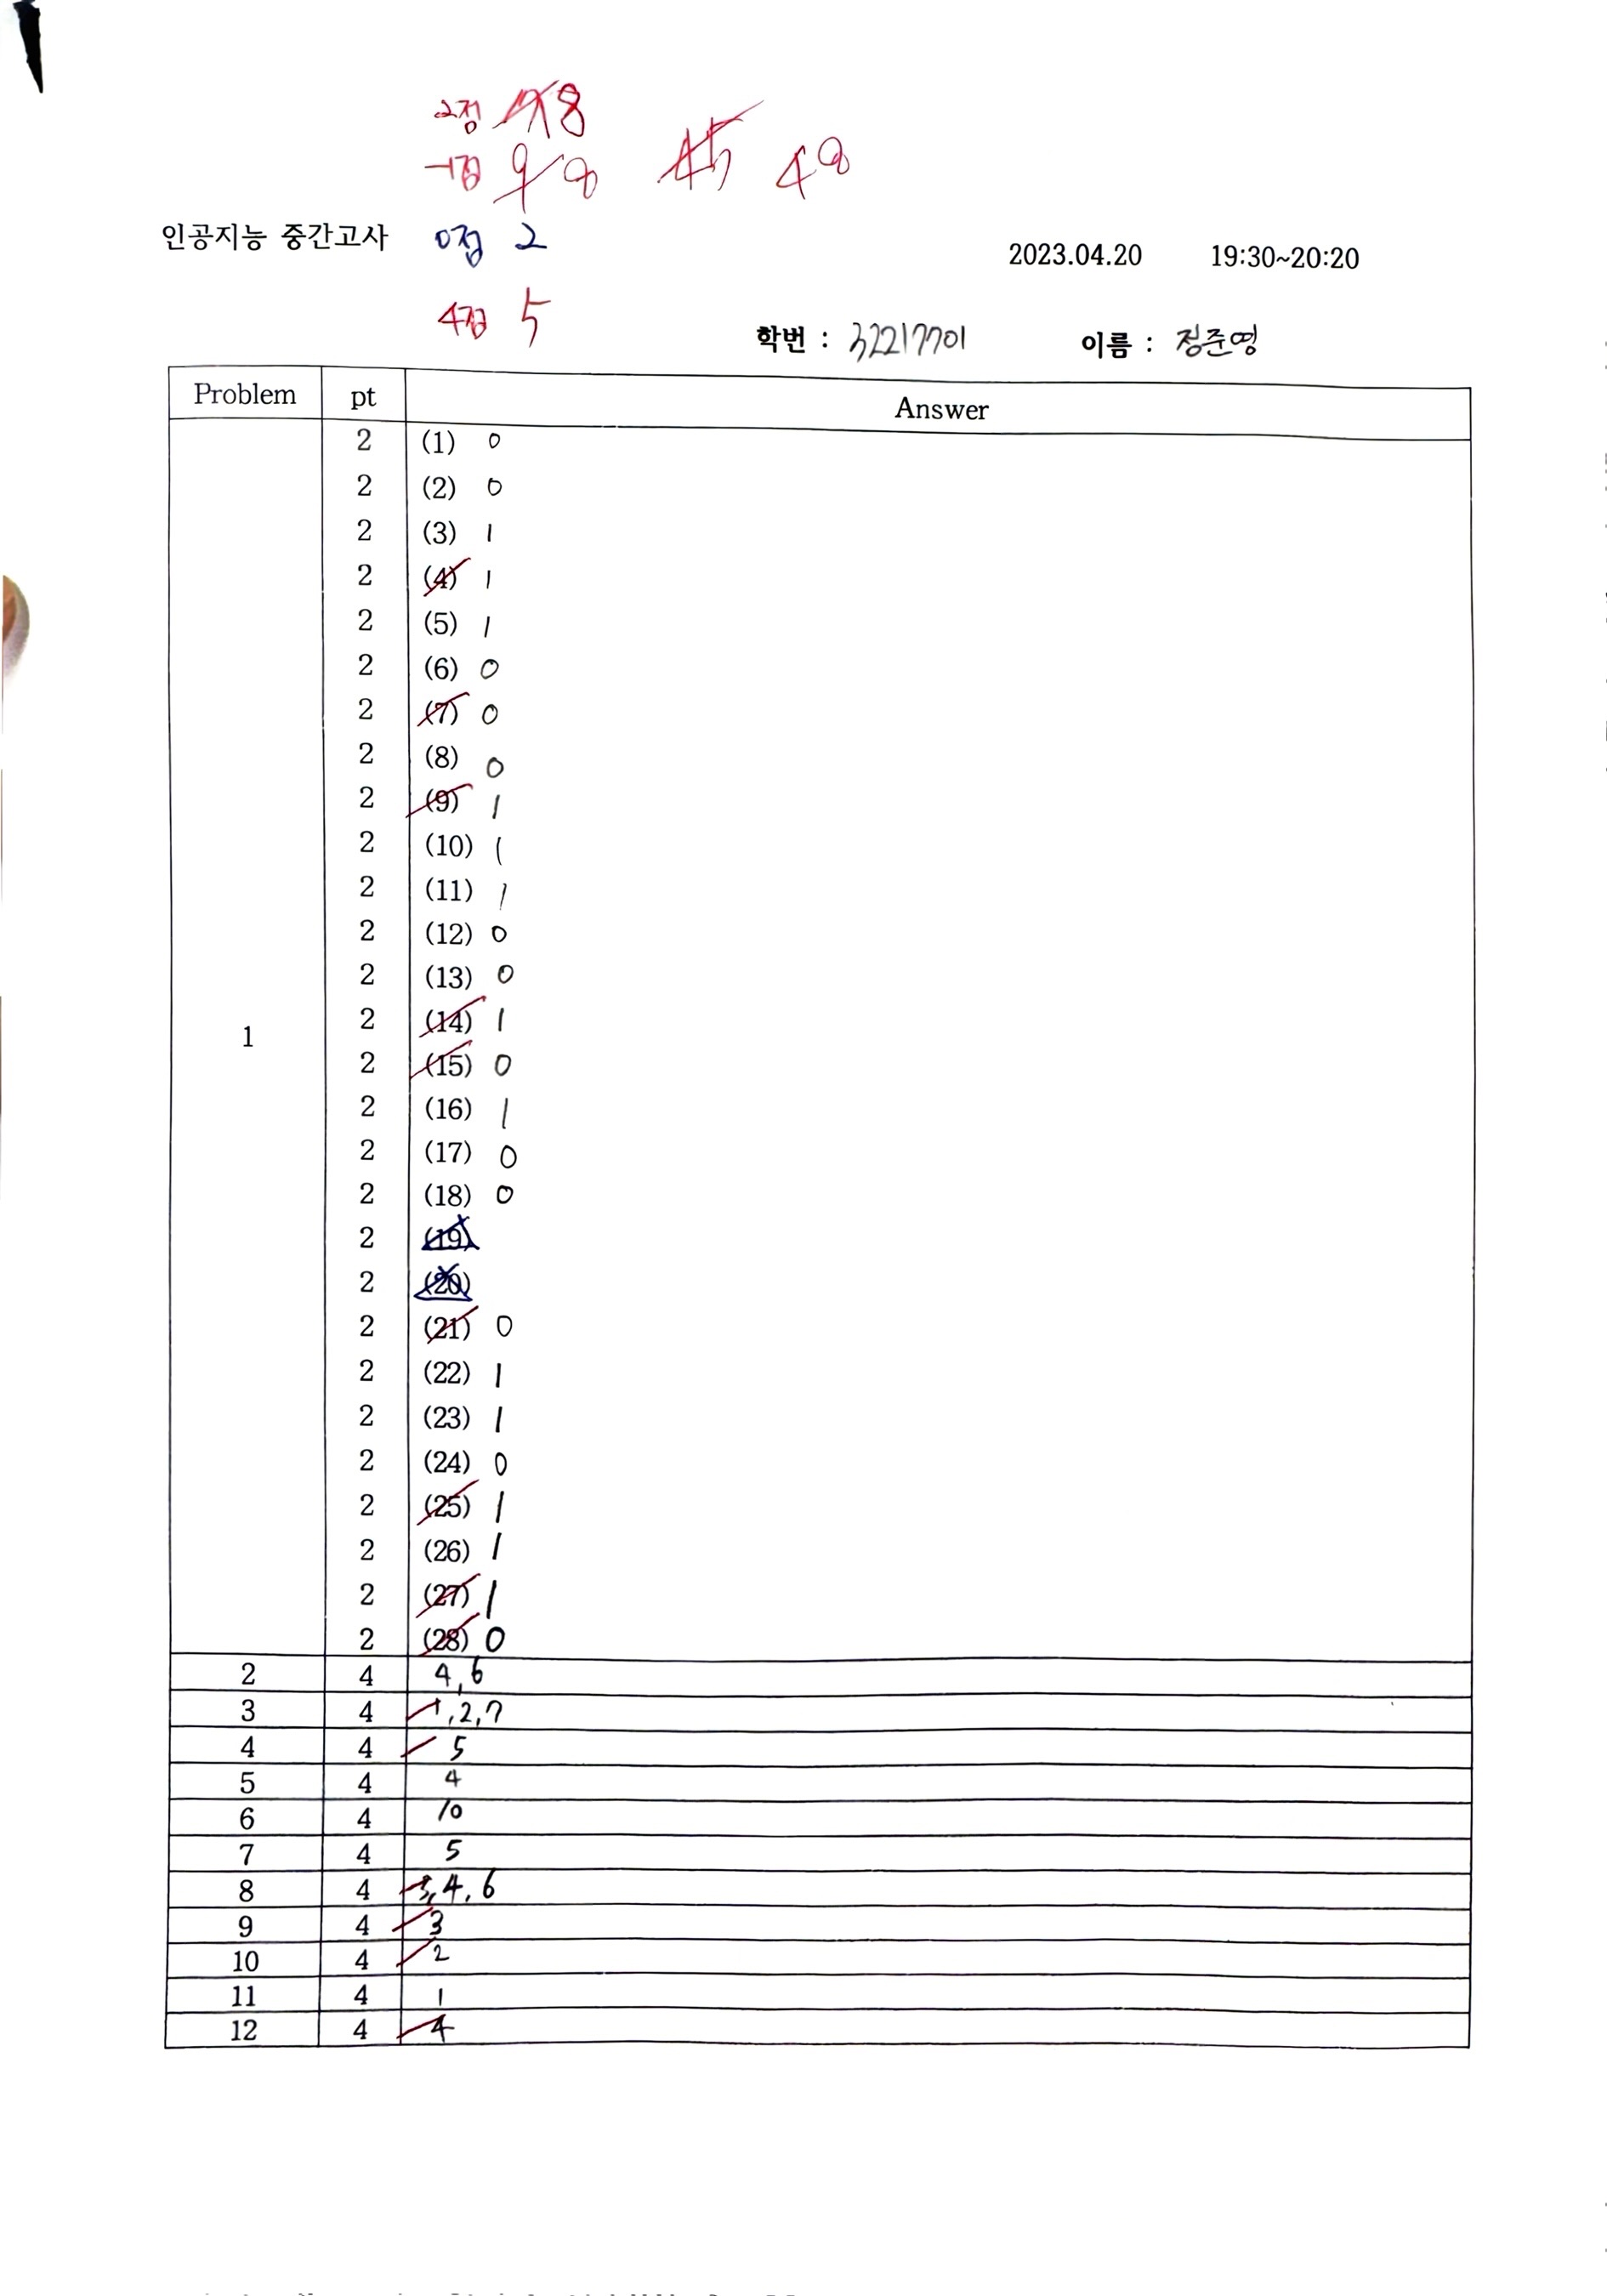 2점 18
-1점 9 8 45 48
인공지능 중간고사 0점 2
2023.04.20 19:30~20:20
4점 5
학번 : 32217701 이름 : 정준영
Problem pt Answer
2 (1) 0
2 (2) 0
2 (3) 1
2 (4) 1
2 (5) 1
2 (6) 0
2 (7) 0
2 (8) 0
2 (9) 1
2 (10) 1
2 (11) 1
2 (12) 0
2 (13) 0
1 2 (14) 1
2 (15) 0
2 (16) 1
2 (17) 0
2 (18) 0
2 (19)
2 (20)
2 (21) 0
2 (22) 1
2 (23) 1
2 (24) 0
2 (25) 1
2 (26) 1
2 (27) 1
2 (28) 0
2 4 4,6
3 4 1,2,7
4 4 5
5 4 4
6 4 10
7 4 5
8 4 3,4,6
9 4 3
10 4 2
11 4 1
12 4 4